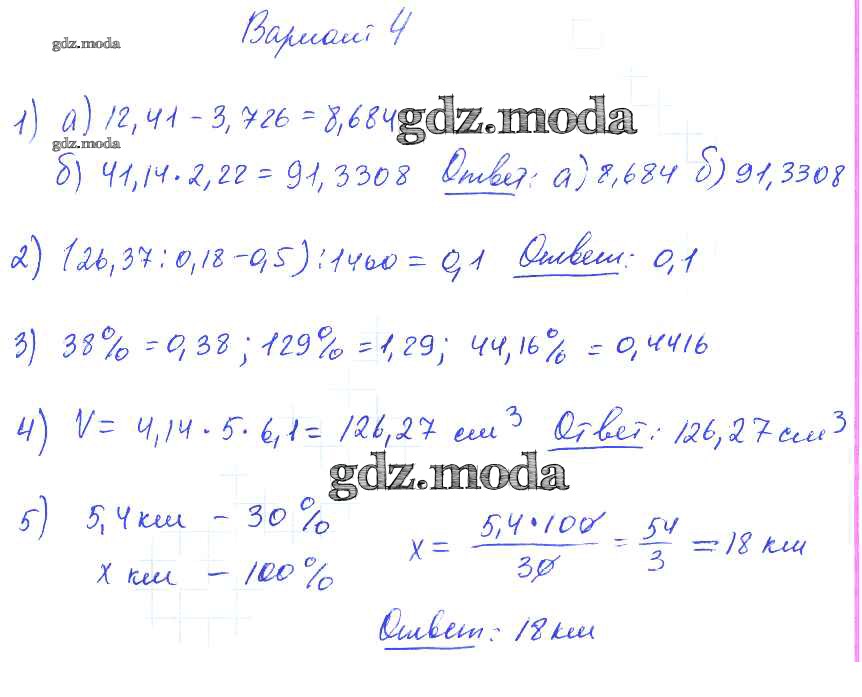 Вариант 4
gdz.moda
1) а) 12,41 - 3,726 = 8,684
gdz.moda
gdz.moda
б) 41,14 · 2,22 = 91,3308 Ответ: а) 8,684 б) 91,3308
2) (26,37 : 0,18 - 0,5) : 1460 = 0,1 Ответ: 0,1
3) 38% = 0,38 ; 129% = 1,29; 44,16% = 0,4416
4) V = 4,14 · 5 · 6,1 = 126,27 см³ Ответ: 126,27 см³
gdz.moda
5) 5,4 км - 30%
х км - 100%
x = 5,4·100/30 = 54/3 = 18 км
Ответ: 18 км